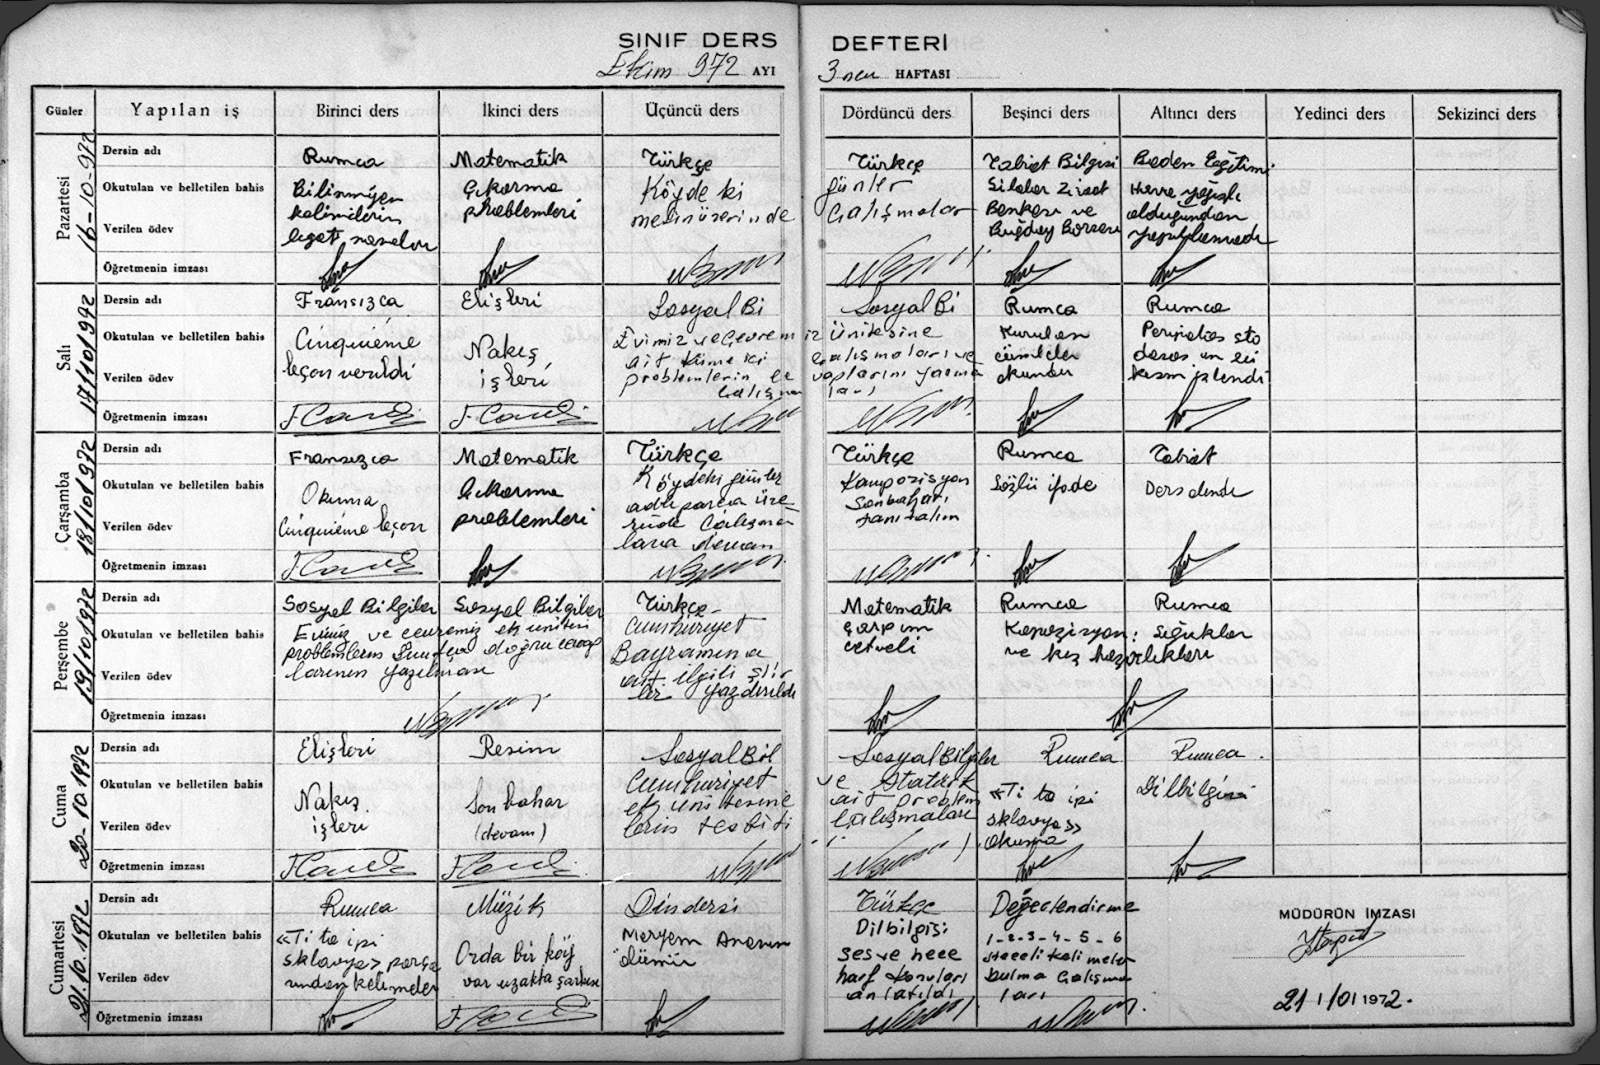 SINIF DERS DEFTERİ
Ekim 972 AYI 3ncu HAFTASI
Günler Yapılan iş Birinci ders İkinci ders Üçüncü ders Dördüncü ders Beşinci ders Altıncı ders Yedinci ders Sekizinci ders
Pazartesi
16-10-972
Dersin adı Rumca Matematik Türkçe Türkçe Tabiat Bilgisi Beden Eğitimi
Okutulan ve belletilen bahis
Verilen ödev
Bilinmiyen
kelimelerin
Çıkarma
problemleri
Köyde ki
günler
çalışmalar
Silolar Ziraat
Bankası ve
Buğday Borsası
Hava yağışlı
olduğundan
yapılamadı
Öğretmenin imzası
Salı
17/10/1972
Dersin adı Fransızca Elişleri Sosyal Bi Sosyal Bi Rumca Rumca
Okutulan ve belletilen bahis
Verilen ödev
Cinquième
leçon verildi
Nakış
işleri
Evimiz ve Çevremiz Ünitesine
ait küme ki çalışmaları ve
problemlerin ce vaplarını yazma
çalışma ları
Kurulan
cümleler
okundu
Öğretmenin imzası
Çarşamba
18/10/1972
Dersin adı Fransızca Matematik Türkçe Türkçe Rumca Tabiat
Okutulan ve belletilen bahis
Verilen ödev
Okuma
Cinquième leçon
Çıkarma
problemleri
Köydeki günler
adlı parça üze
rinde çalışma
lara devam
Kompozisyon
Sonbaharı
tanıtalım
Sözlü ifade
Öğretmenin imzası
Perşembe
19/10/1972
Dersin adı Sosyal Bilgiler Sosyal Bilgiler Türkçe Matematik Rumca Rumca
Okutulan ve belletilen bahis
Verilen ödev
Evimiz ve çevremiz ek üniteri
problemlerin doğru cevap
larının yazılması
Cumhuriyet
Bayramına
ait ilgili şiir
ler yazdırıldı
Çarpım
cetveli
Kompozisyon: Soğuklar
ve kış hazırlıkları
Öğretmenin imzası
Cuma
20-10-1972
Dersin adı Elişleri Resim Sosyal Bil Sosyal Bilgiler Rumca Rumca
Okutulan ve belletilen bahis
Verilen ödev
Nakış
işleri
Son bahar
(devam)
Cumhuriyet
ek ünitesine
lerin tesbiti
ve Atatürk
ait problem
çalışmaları
«Ti ta ipi
sklavya»
okuma
Dilbilgisi
Öğretmenin imzası
Cumartesi
21.10.1972
Dersin adı Rumca Müzik Din dersi Türkçe Değerlendirme
Okutulan ve belletilen bahis
Verilen ödev
«Ti ta ipi
sklavya» parça
sından kelimeler
Orda bir köy
var uzakta şarkısı
Meryem Ananın
ölümü
Dilbilgisi
ses ve hece
harf konuları
anlatıldı
1-2-3-4-5-6
heceli kelimeler
bulma çalışma
ları
Öğretmenin imzası
MÜDÜRÜN İMZASI
21 1/01 1972.